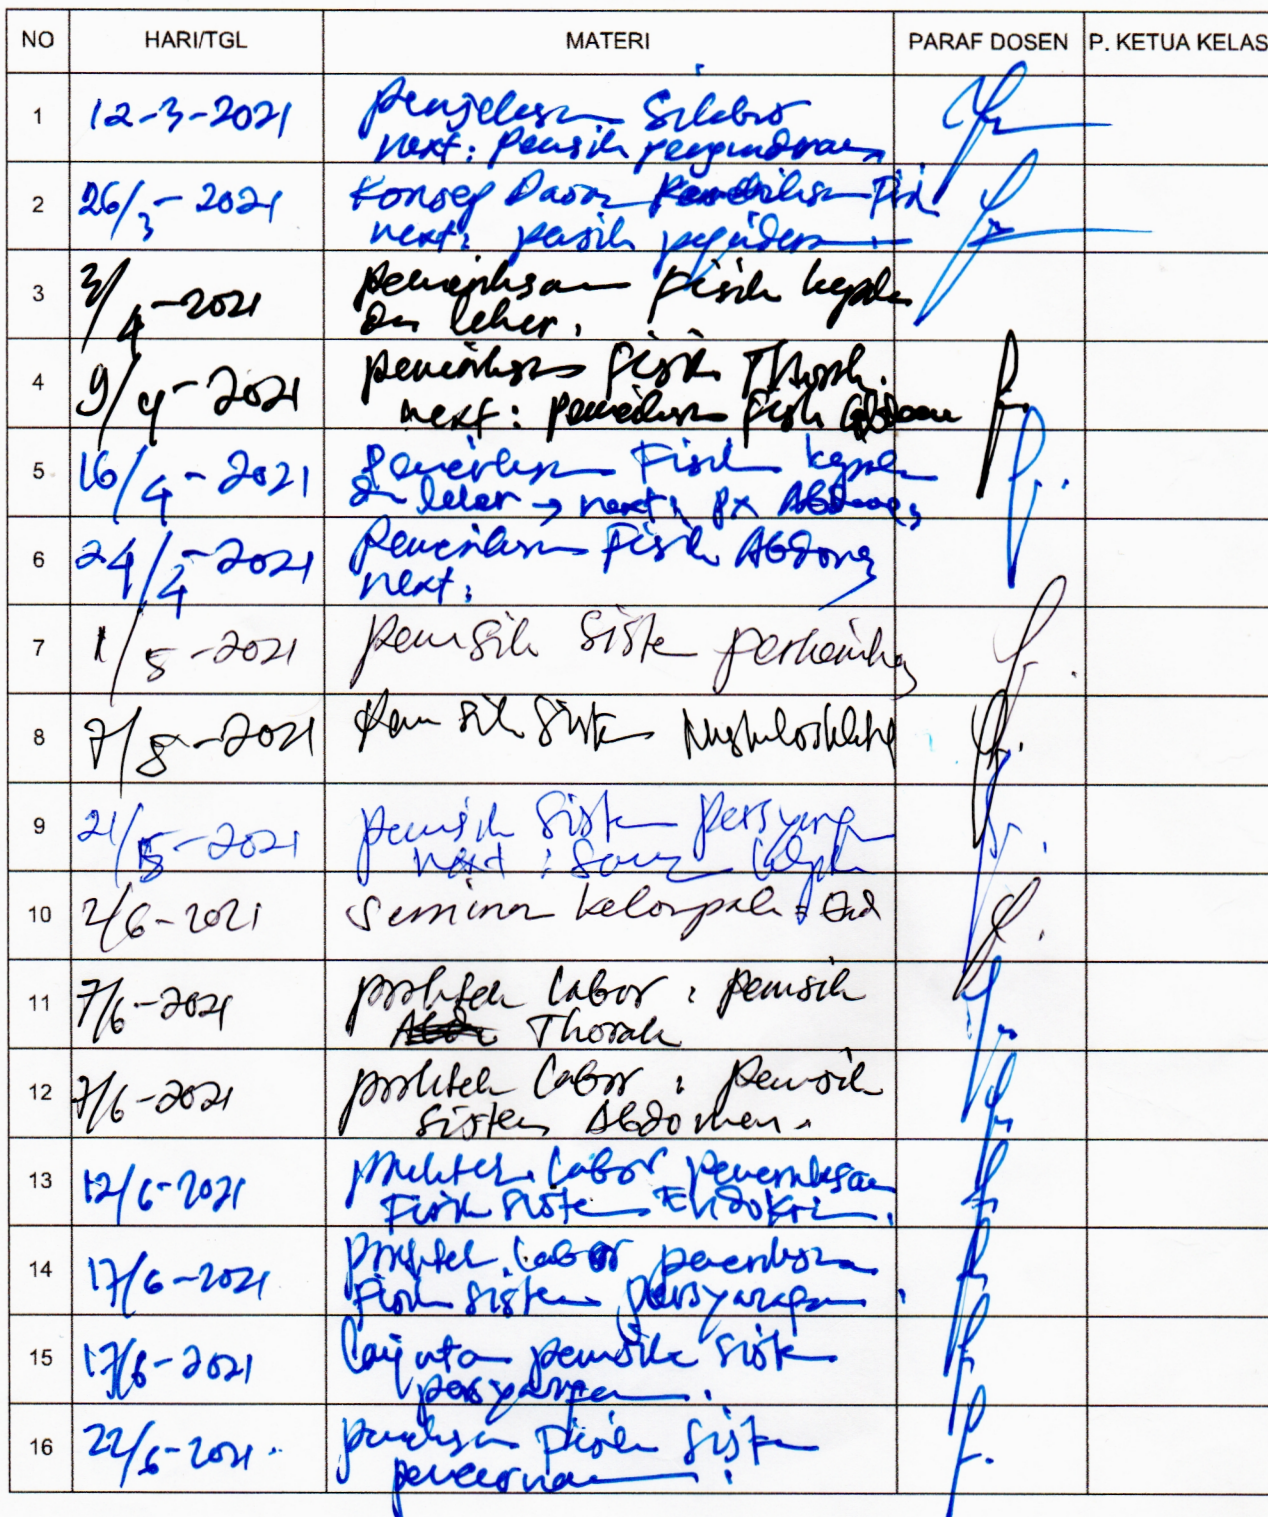 NO HARI/TGL MATERI PARAF DOSEN P. KETUA KELAS
1 12-3-2021 Penjelasan Silabus
next: Pemsik
2 26/3-2021 Konsep Dasar Fisik
next: pemsik
3 2/4-2021 pemeriksaan Fisik kepala
dan leher.
4 9/4-2021 pemeriksaan fisik Thorak.
next: pemeriksaan fisik Abdomen
5 16/4-2021 pemeriksaan Fisik kepala
dan leher → next: px Abdomen
6 24/4-2021 pemeriksaan Fisik Abdomen
next:
7 1/5-2021 pemsik sistem perkemihan
8 7/5-2021 pemsik sistem Muskuloskletal
9 21/5-2021 pemsik sistem persyarafan
next:
10 2/6-2021 seminar kelompok
11 7/6-2021 praktek labor: pemsik
Thorak
12 7/6-2021 praktek labor: pemsik
sistem Abdomen.
13 12/6-2021 praktek labor pemeriksaan
Fisik sistem Endokrin.
14 17/6-2021 praktek labor pemeriksaan
Fisik sistem persyarafan
15 17/6-2021 lanjutan pemsik sistem
persyarafan.
16 22/6-2021 pemeriksaan Fisik sistem
pencernaan